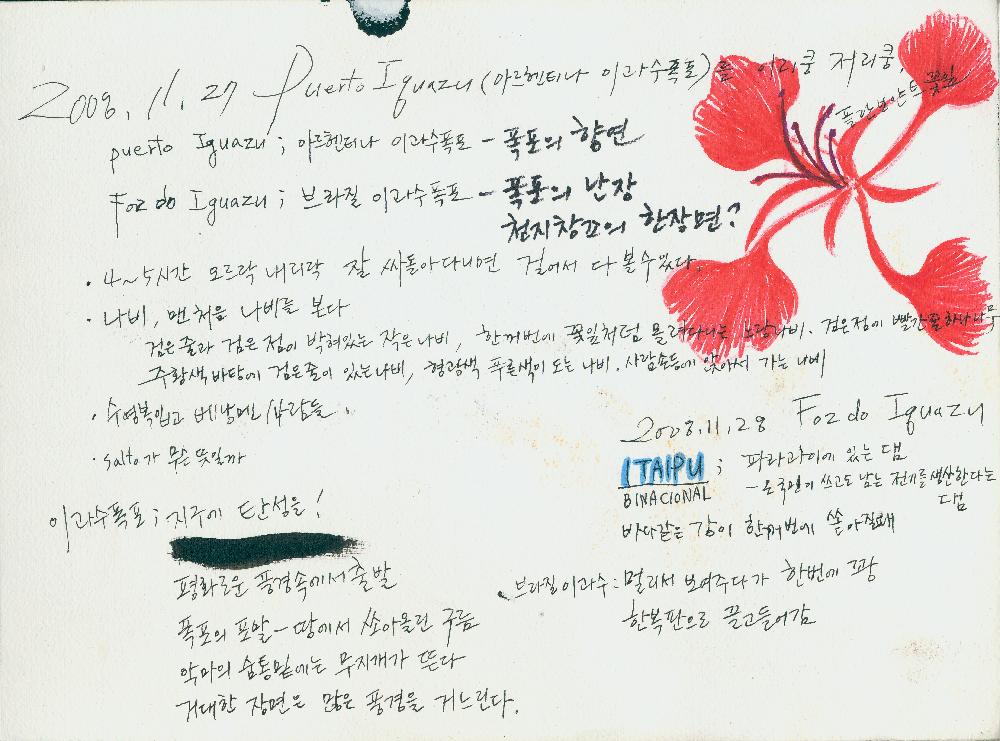 2008. 11. 27 Puerto Iguazu (아르헨티나 이과수폭포)를 이리쿵 저리쿵.
플람보얀트 꽃잎
puerto Iguazu ; 아르헨티나 이과수폭포 - 폭포의 향연
Foz do Iguazu ; 브라질 이과수폭포 - 폭포의 난장
천지창조의 한장면?
· 4~5시간 오르락 내리락 잘 싸돌아다니면 걸어서 다 볼수있다.
· 나비, 맨처음 나비를 본다
검은줄과 검은점이 박혀있는 작은나비, 한꺼번에 꽃잎처럼 몰려다니는 노랑나비. 검은점에 빨간꽃하나
주황색바탕에 검은줄이 있는나비, 형광색 푸른색이 도는 나비. 사람손등에 앉아서 가는 나비
· 수영복입고 배낭멘 사람들.
· salto가 무슨 뜻일까
이과수폭포 ; 지구에 탄성을!
평화로운 풍경속에서 출발
폭포의 포말 - 땅에서 쏘아올린 구름
악마의 숨통밑에는 무지개가 뜬다
거대한 장면은 많은 풍경을 거느린다.
2008. 11. 28 Foz do Iguazu
ITAIPU ; 파라과이에 있는 댐
BINACIONAL - 온국민이 쓰고도 남는 전기를 생산한다는
댐
바다같은 강이 한꺼번에 쏟아질때
· 브라질이과수 : 멀리서 보여주다가 한번에 꽝
한복판으로 끌고들어감